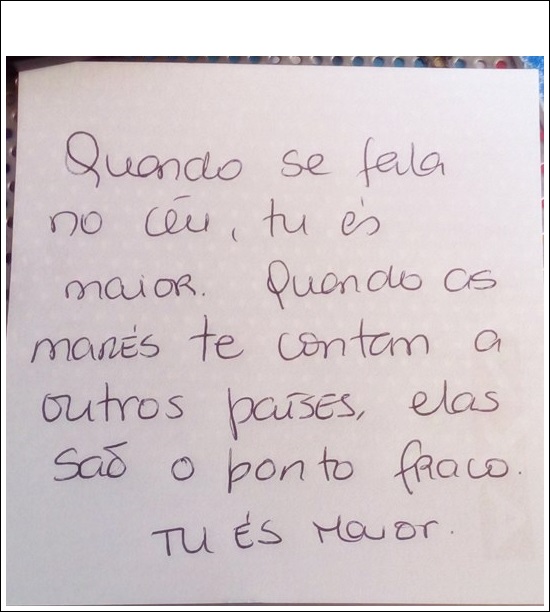 Quando se fala
no céu, tu és
maior. Quando as
marés te contam a
outros países, elas
saõ o ponto fraco.
TU ÉS MAIOR.